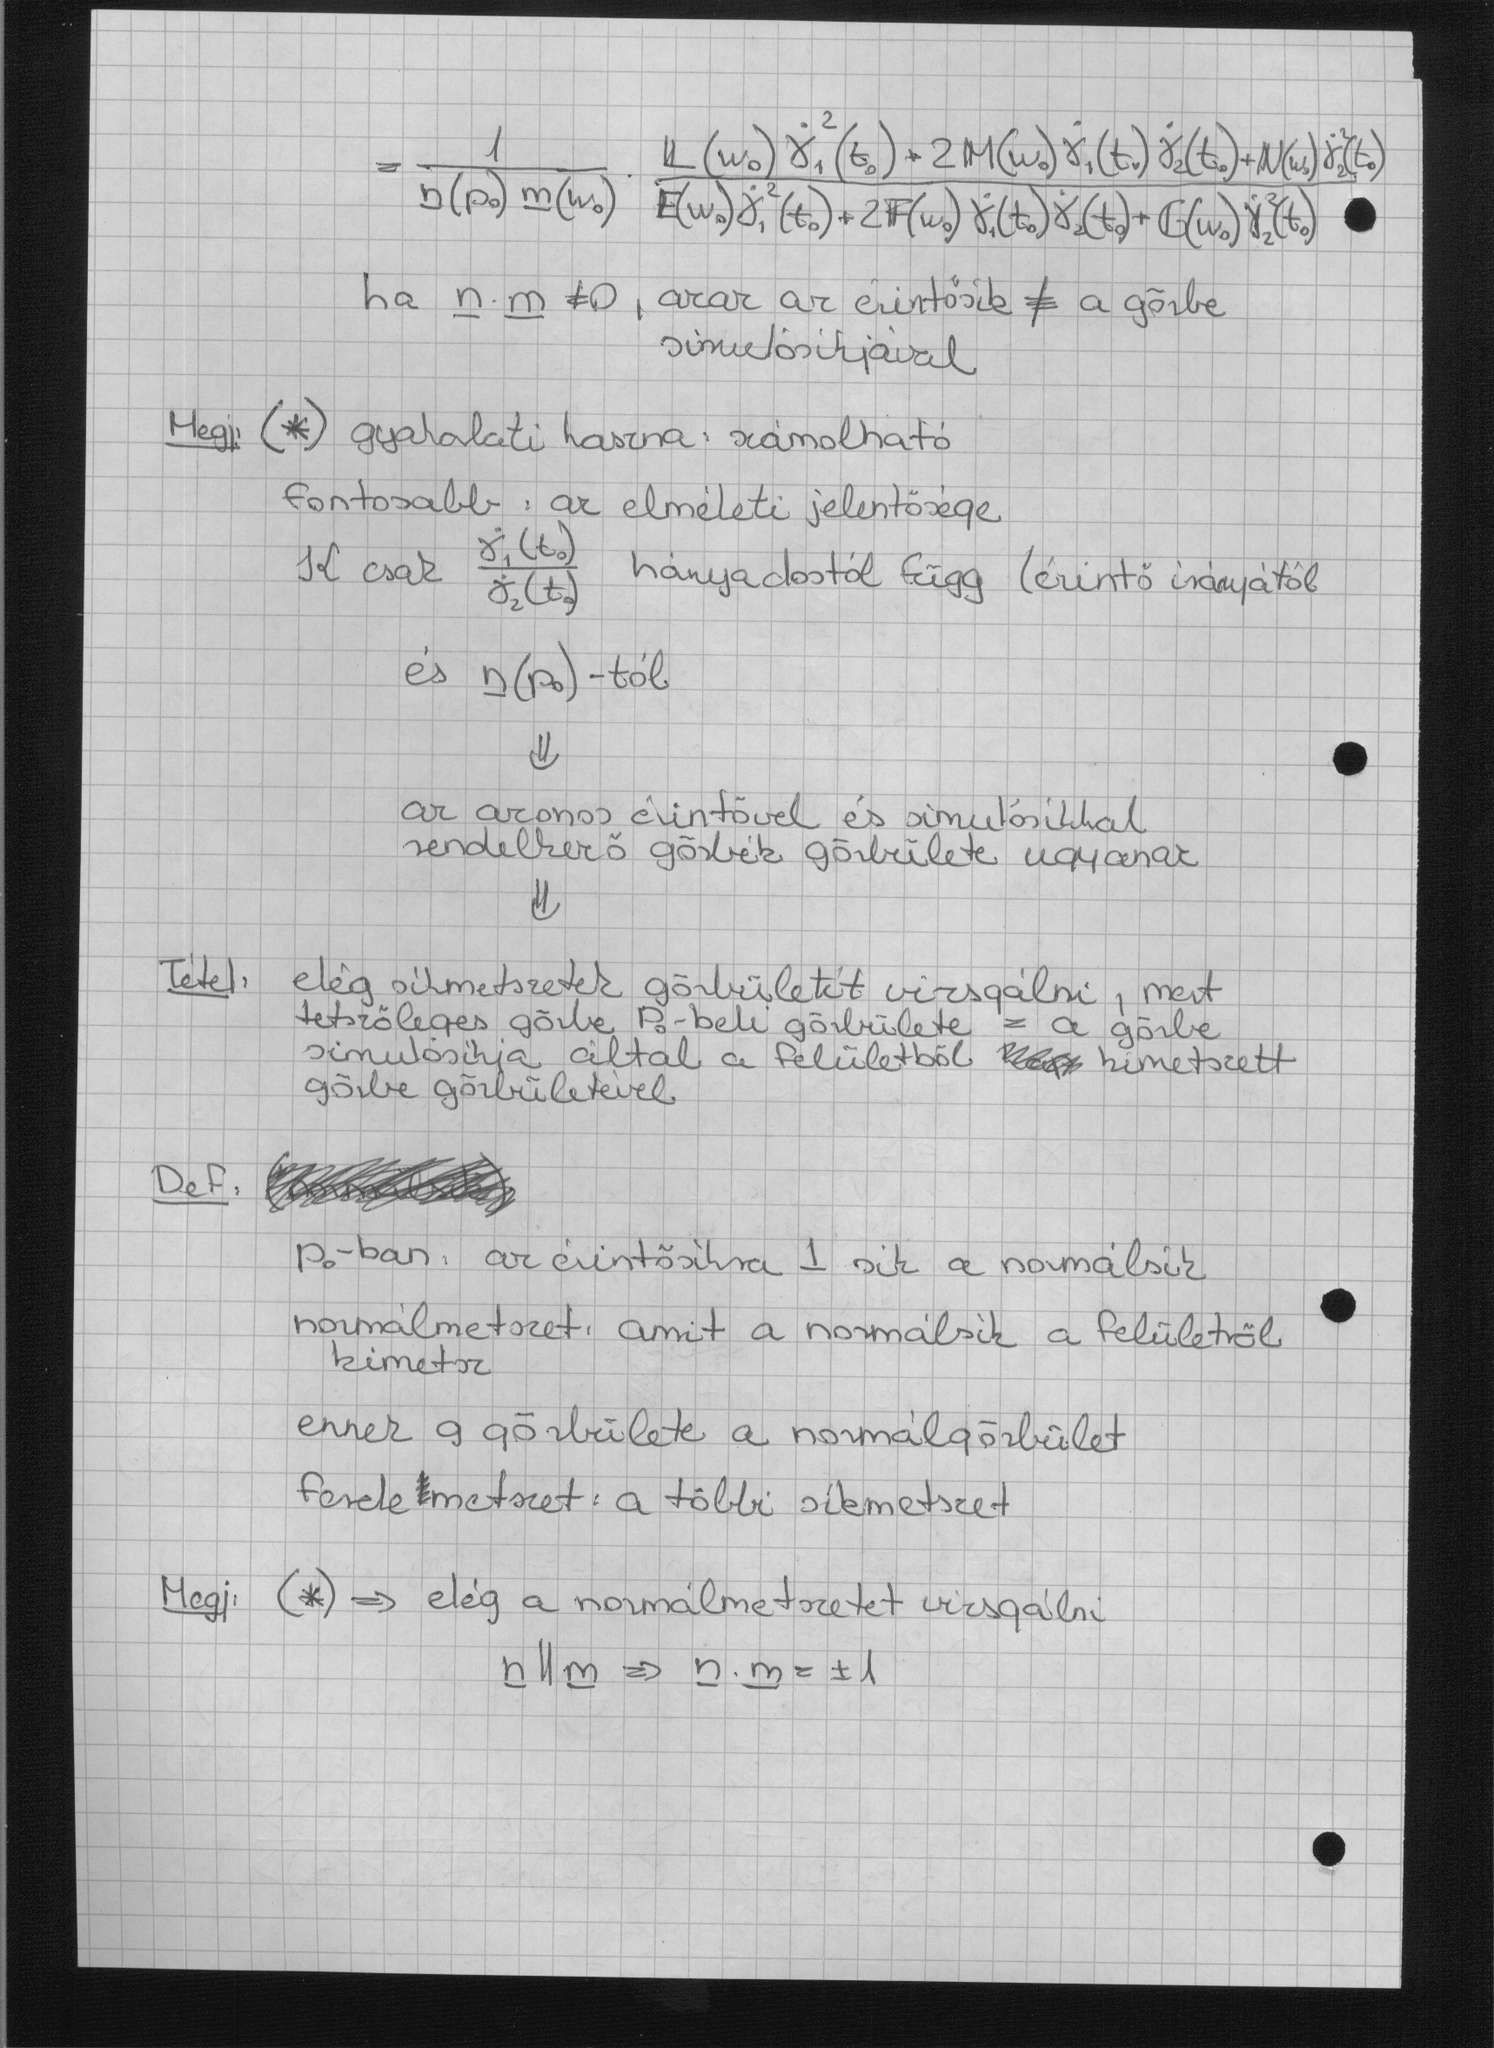 = 1 / (n(p₀) m(w₀)) · (𝕃(w₀) γ̇₁²(t₀) + 2𝕄(w₀) γ̇₁(t₀) γ̇₂(t₀) + ℕ(w₀) γ̇₂²(t₀)) / (𝔼(w₀) γ̇₁²(t₀) + 2𝔽(w₀) γ̇₁(t₀) γ̇₂(t₀) + 𝔾(w₀) γ̇₂²(t₀))
ha n · m ≠ 0, azaz az érintősík ≠ a görbe
simulósíkjával
Megj: (*) gyakolati haszna: számolható
fontosabb: az elméleti jelentősége
K csak γ̇₁(t₀) / γ̇₂(t₀) hányadostól függ (érintő irányától
és n(p₀)-tól
⇓
az azonos érintővel és simulósíkkal
rendelkező görbék görbülete ugyanaz
⇓
Tétel: elég síkmetszetek görbületét vizsgálni, mert
tetszőleges görbe p₀-beli görbülete = a görbe
simulósíkja által a felületből kimetszett
görbe görbületével
Def:
p₀-ban: az érintősíkra ⊥ sík a normálsík
normálmetszet: amit a normálsík a felületről
kimetsz
ennek g görbülete a normálgörbület
ferde metszet: a többi síkmetszet
Megj: (*) ⇒ elég a normálmetszetet vizsgálni
n ∥ m ⇒ n · m = ±1